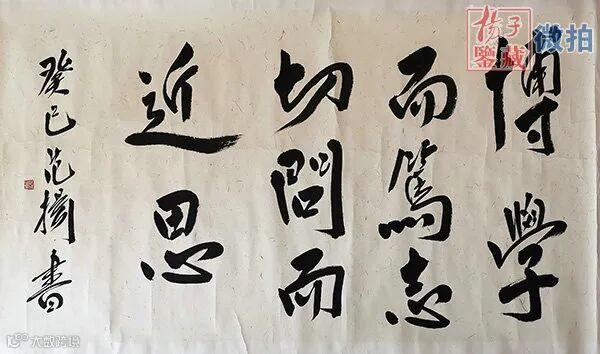 博學
而篤志
切問而
近思
癸巳范揚書
揚子
鑒藏
微拍
大數跨境